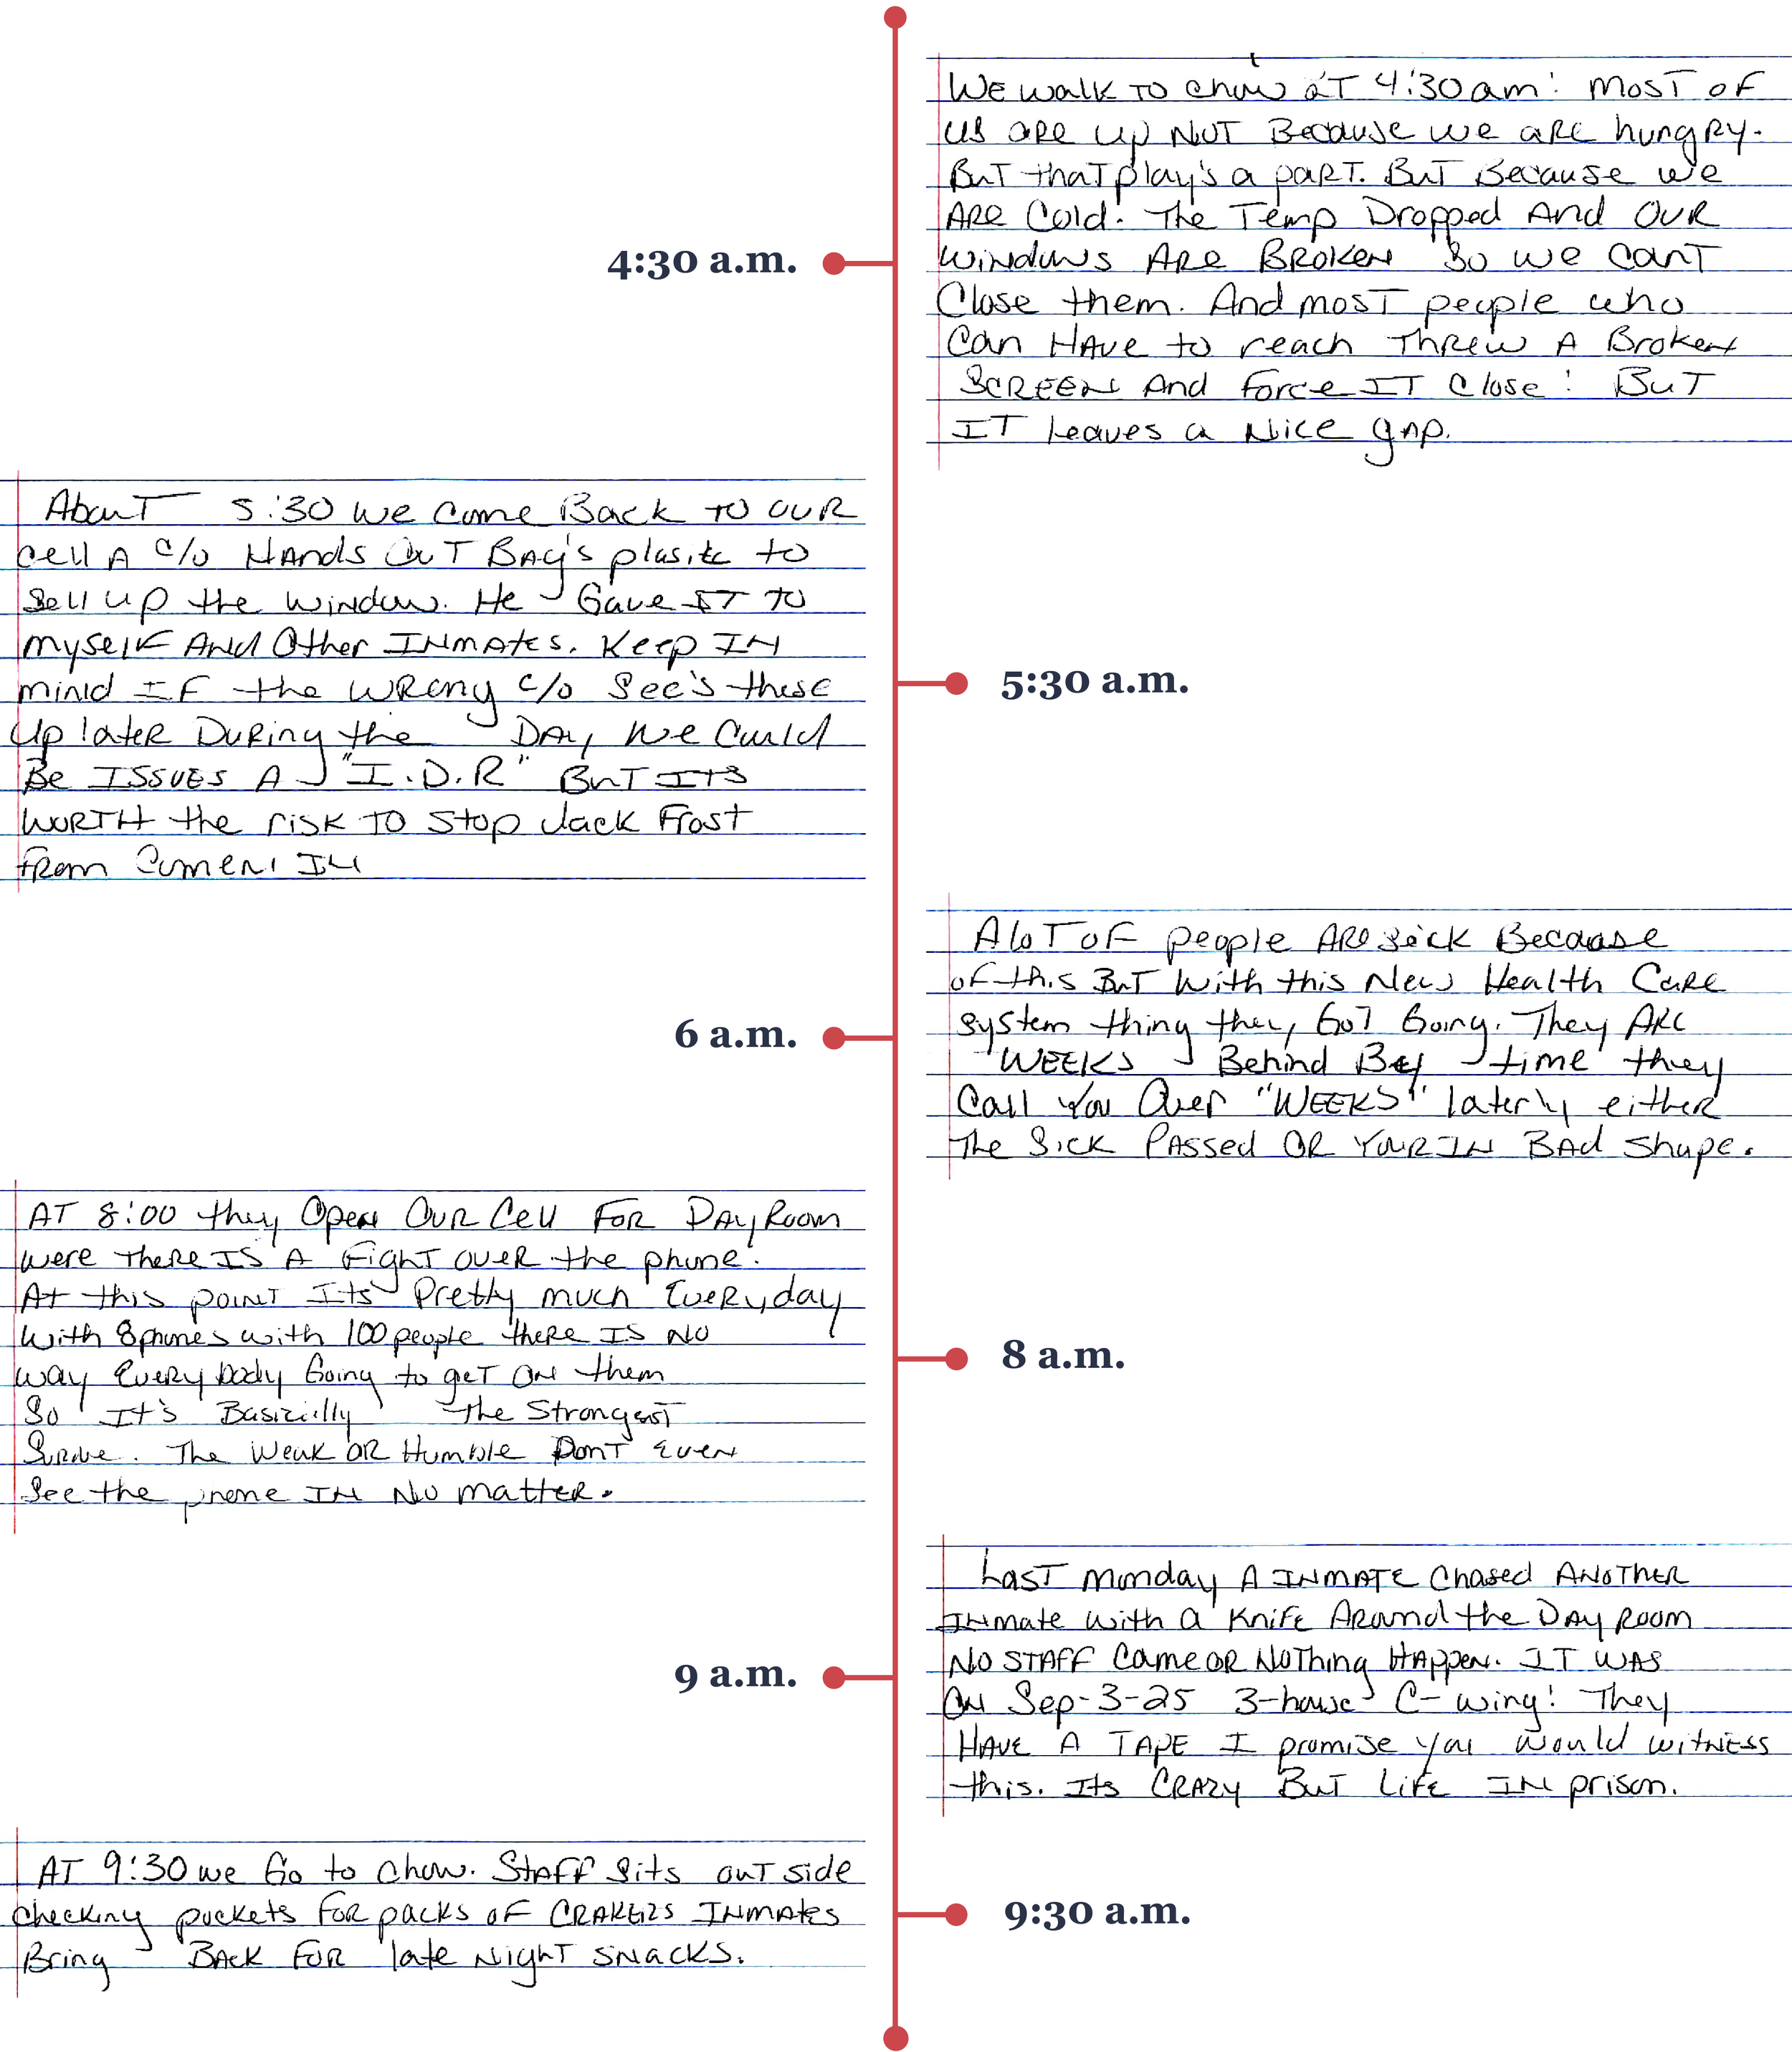 We walk to chow at 4:30 am: most of
us are up not Because we are hungry.
But that play's a part. But Because we
Are Cold. The Temp Dropped And Our
windows Are Broken So we cant
Close them. And most people who
Can Have to reach Threw A Broken
Screen And force It Close! But
It Leaves a Nice gap.
4:30 a.m.
About 5:30 we come Back to our
cell A c/o Hands Out Bag's plasitc to
Sell up the window. He Gave It to
myself And Other Inmates. Keep In
mind If the wrong c/o See's these
Up later During the Day we Could
Be Issues A "I.D.R" But Its
Worth the risk To Stop Jack Frost
from Comen In
5:30 a.m.
A lot of people Are Sick Because
of this But With this New Health Care
System thing they Got Going. They Are
WEEKS Behind By time they
Call You Over "WEEKS" laterly either
The Sick Passed Or Your In Bad Shape.
6 a.m.
At 8:00 they Open Our Cell For DayRoom
were There Is A Fight over the phone.
At this point Its Pretty much Everyday
with 8 phones with 100 people there Is No
way Every body Going to get On them
So It's Basizilly The Strongest
Surive. The Weak or Humble Dont Even
See the phone In No matter.
8 a.m.
Last monday A Inmate Chased Another
Inmate with a Knife Around the Day Room
No Staff Came or Nothing Happen. It was
On Sep-3-25 3-house C-wing! They
Have A Tape I promise you would witness
this. Its Crazy But Life In prison.
9 a.m.
At 9:30 we Go to chow. Staff Sits out side
checking pockets for packs of Crakers Inmates
Bring Back For late Night snacks.
9:30 a.m.